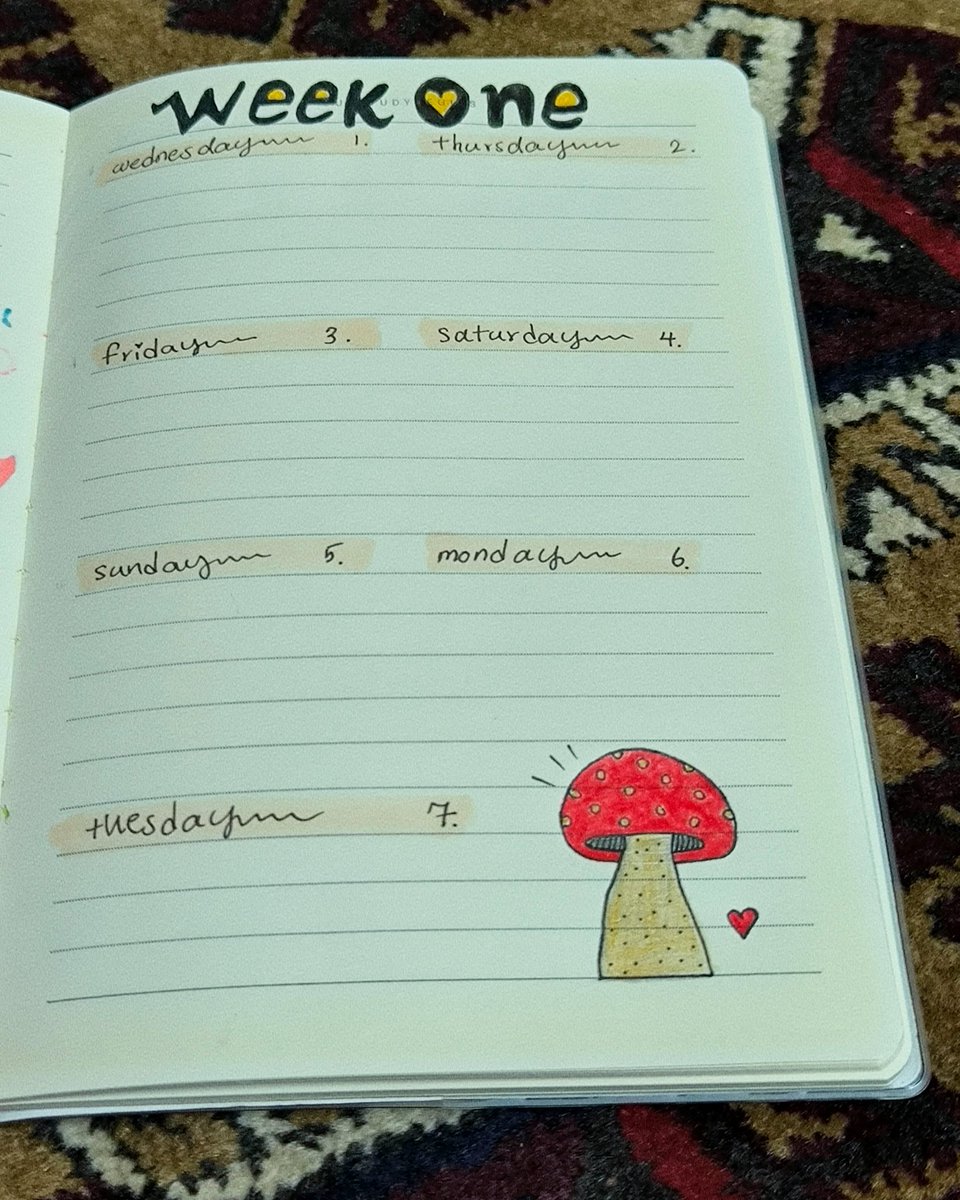 week one
wednesday 1. thursday 2.
friday 3. saturday 4.
sunday 5. monday 6.
tuesday 7.